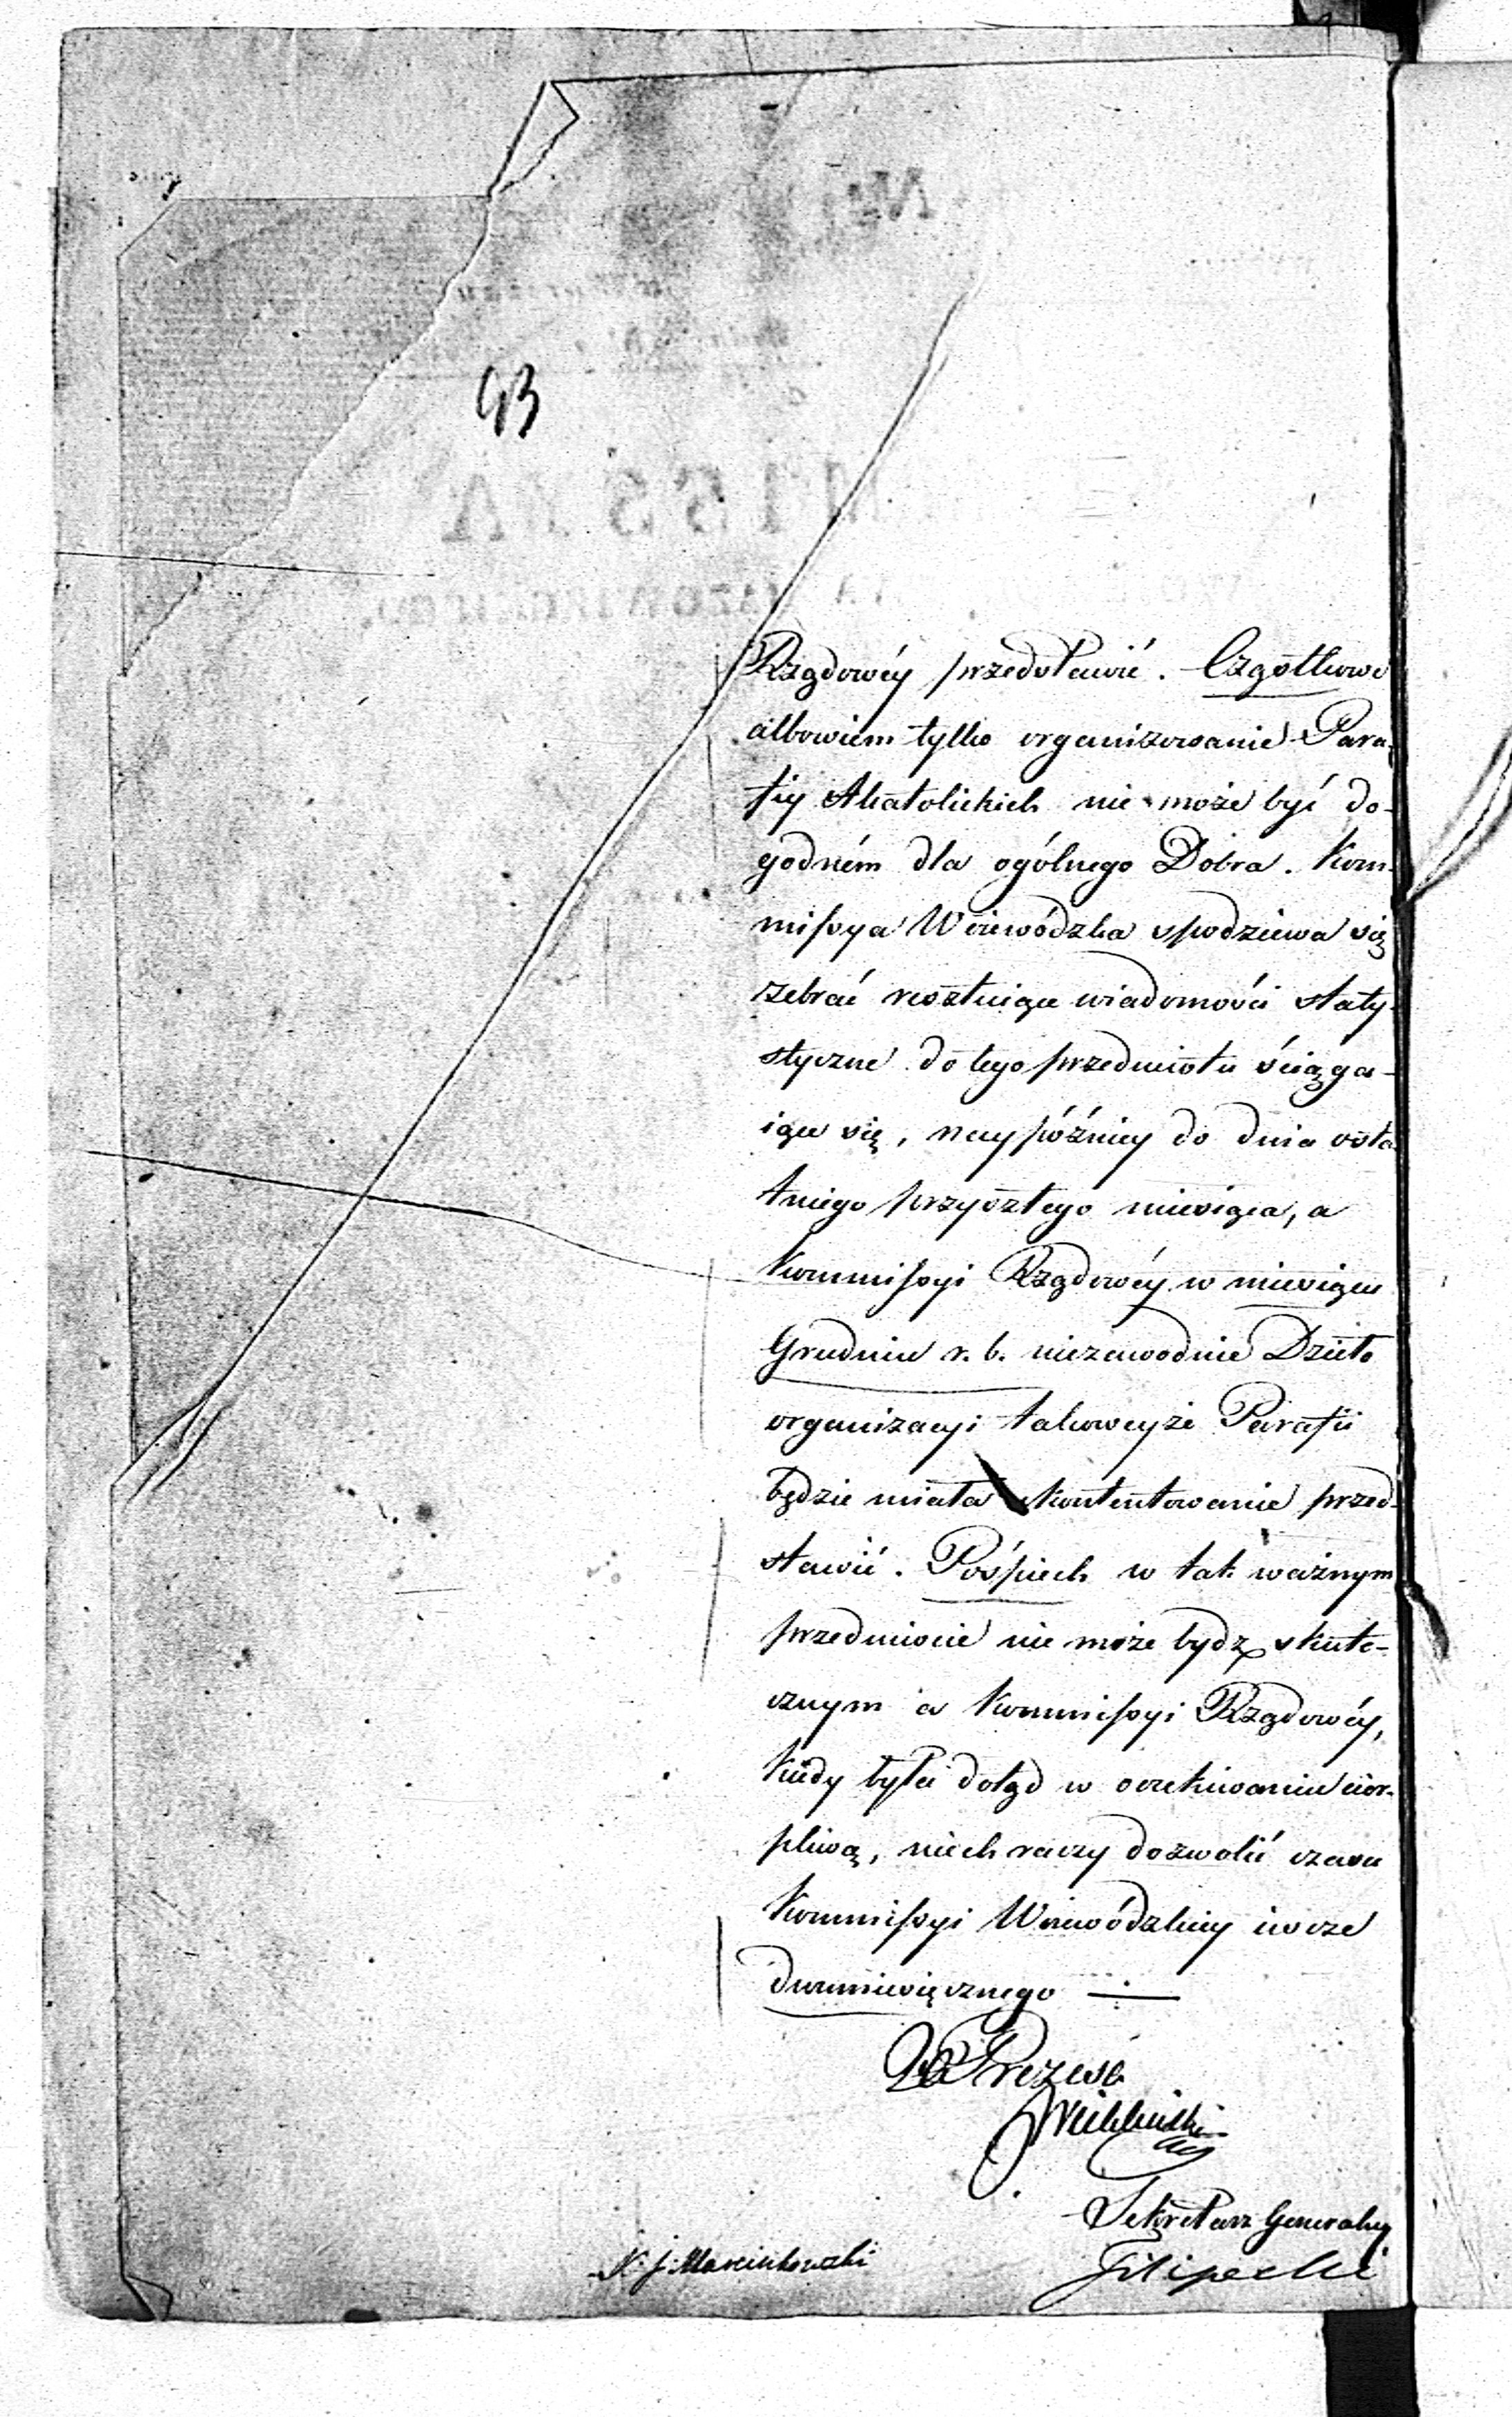 93
Rządowéy przedstawić. Cząstkowe
albowiem tylko organizowanie Para-
fiy Akatolickich nie może być do-
godném dla ogólnego Dobra. Kom-
missya Woiewódzka spodziewa się
zebrać resztuiące wiadomości staty-
styczne do tego przedmiotu ściąga-
iące się, naypóźniey do dnia osta-
tniego przyszłego miesiąca, a
Kommissyi Rządowéy w miesiącu
Grudniu r. b. niezawodnie Dzieło
organizacyi takoweyże Parafii
będzie miała ukontentowanie przed-
stawić. Pośpiech w tak ważnym
przedmiocie nie może bydź skute-
cznym a Kommissyi Rządowéy,
kiedy była dotąd w oczekiwaniu cier-
pliwą, niech raczy dozwolić czasu
Kommissyi Woiewódzkiey ieszcze
dwumiesięcznego
Prezesa
Sekretarz Generalny
Filipecki
N. J. Marcinkowski